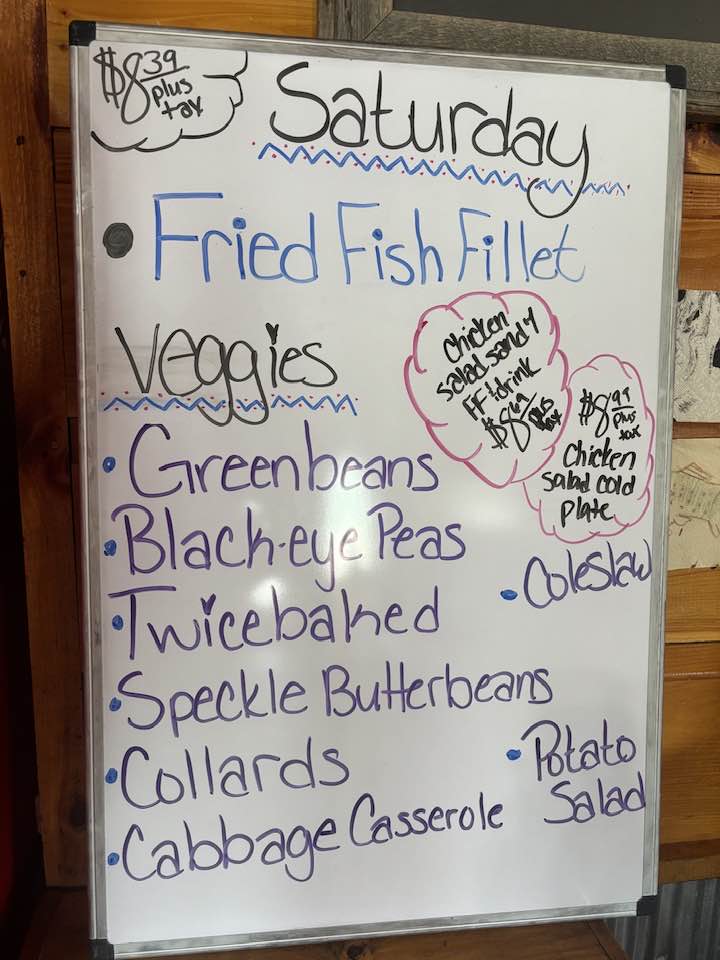 $8 39
plus
tax
Saturday
Fried Fish Fillet
Veggies
chicken
salad sand4
FF & drink
$8 69 plus
tax
$8 99
plus
tax
Chicken
salad cold
plate
Greenbeans
Black-eye Peas
Coleslaw
Twicebaked
Speckle Butterbeans
Collards
Potato
Salad
Cabbage Casserole